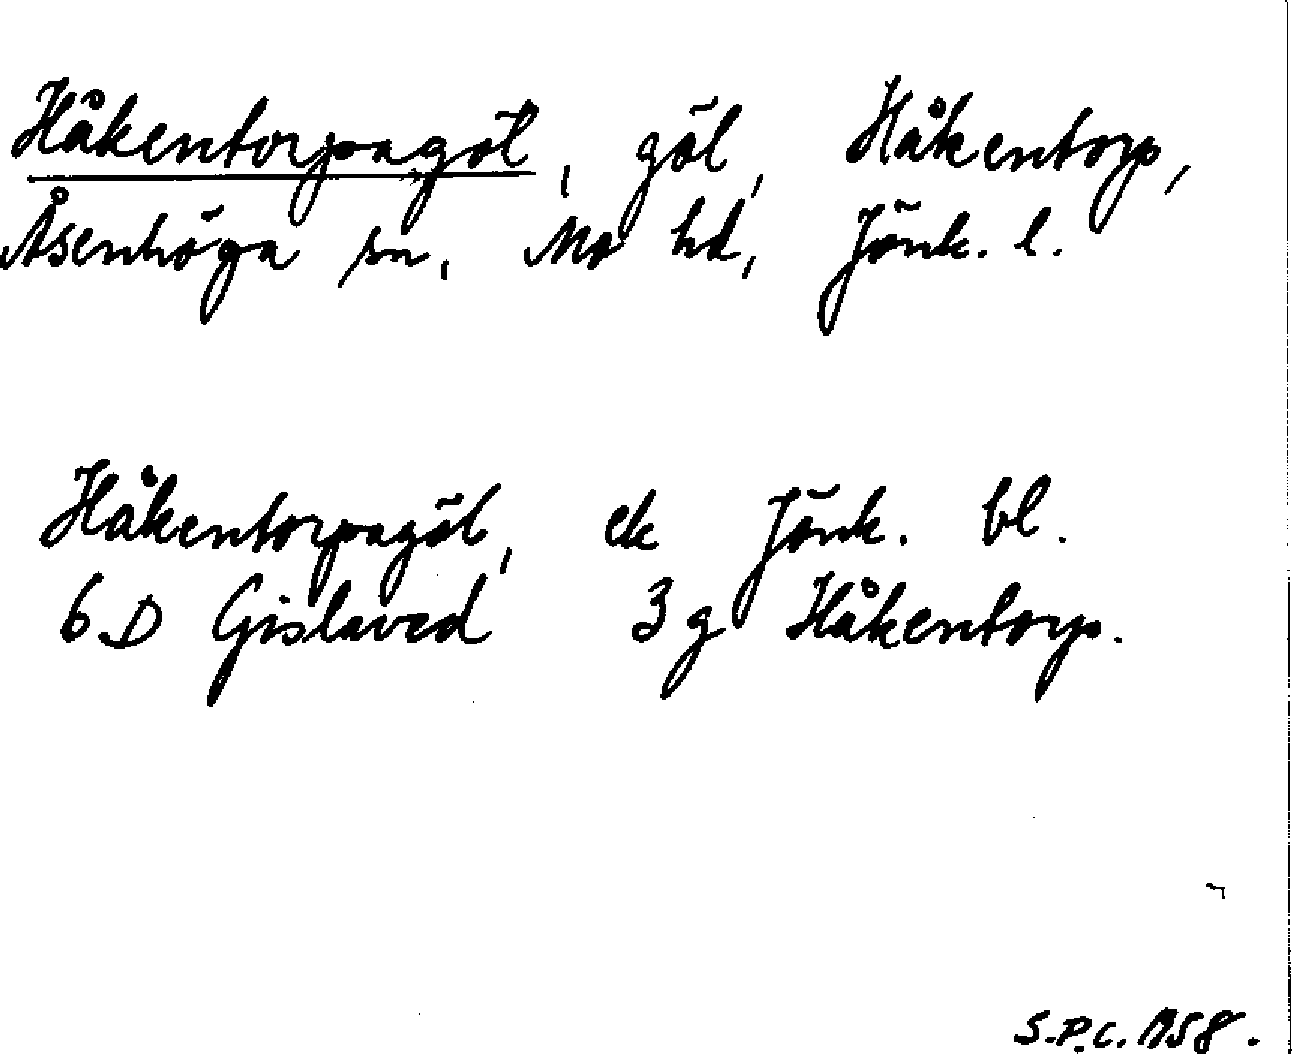 Håkentorpagöl, göl, Håkentorp,
Åsenhöga sn, Mo hd, Jönk. l.
Håkentorpagöl, ek Jönk. bl.
6D Gislaved 3g Håkentorp.
S.P.C. 1958.